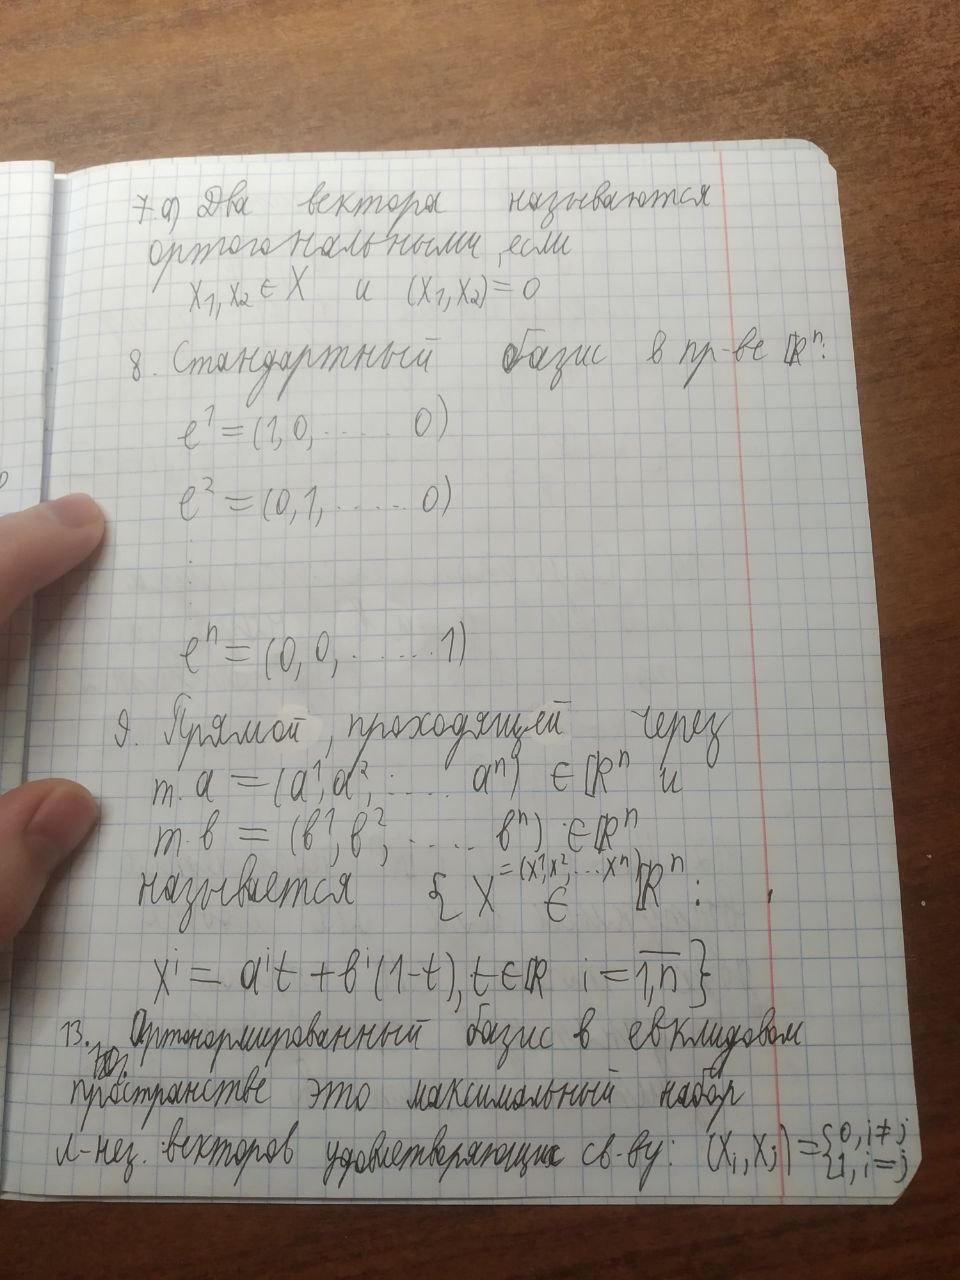 7.а) Два вектора называются
ортогональными, если
x₁, x₂ ∈ X и (x₁, x₂) = 0
8. Стандартный базис в пр-ве ℝⁿ:
e¹ = (1, 0, ..... 0)
e² = (0, 1, ..... 0)
eⁿ = (0, 0, ..... 1)
9. Прямой, проходящей через
т. a = (a¹, a², .... aⁿ) ∈ ℝⁿ и
т. в = (в¹, в², .... вⁿ) ∈ ℝⁿ
называется { X = (x¹, x², ... xⁿ) ∈ ℝⁿ :
xⁱ = aⁱt + вⁱ(1-t), t ∈ ℝ i = 1,n̅ }
13. Ортонормированный базис в евклидовом
пространстве это максимальный набор
л-нез. векторов удовлетворяющих св-ву: (xᵢ, xⱼ) = {0, i ≠ j
{1, i = j